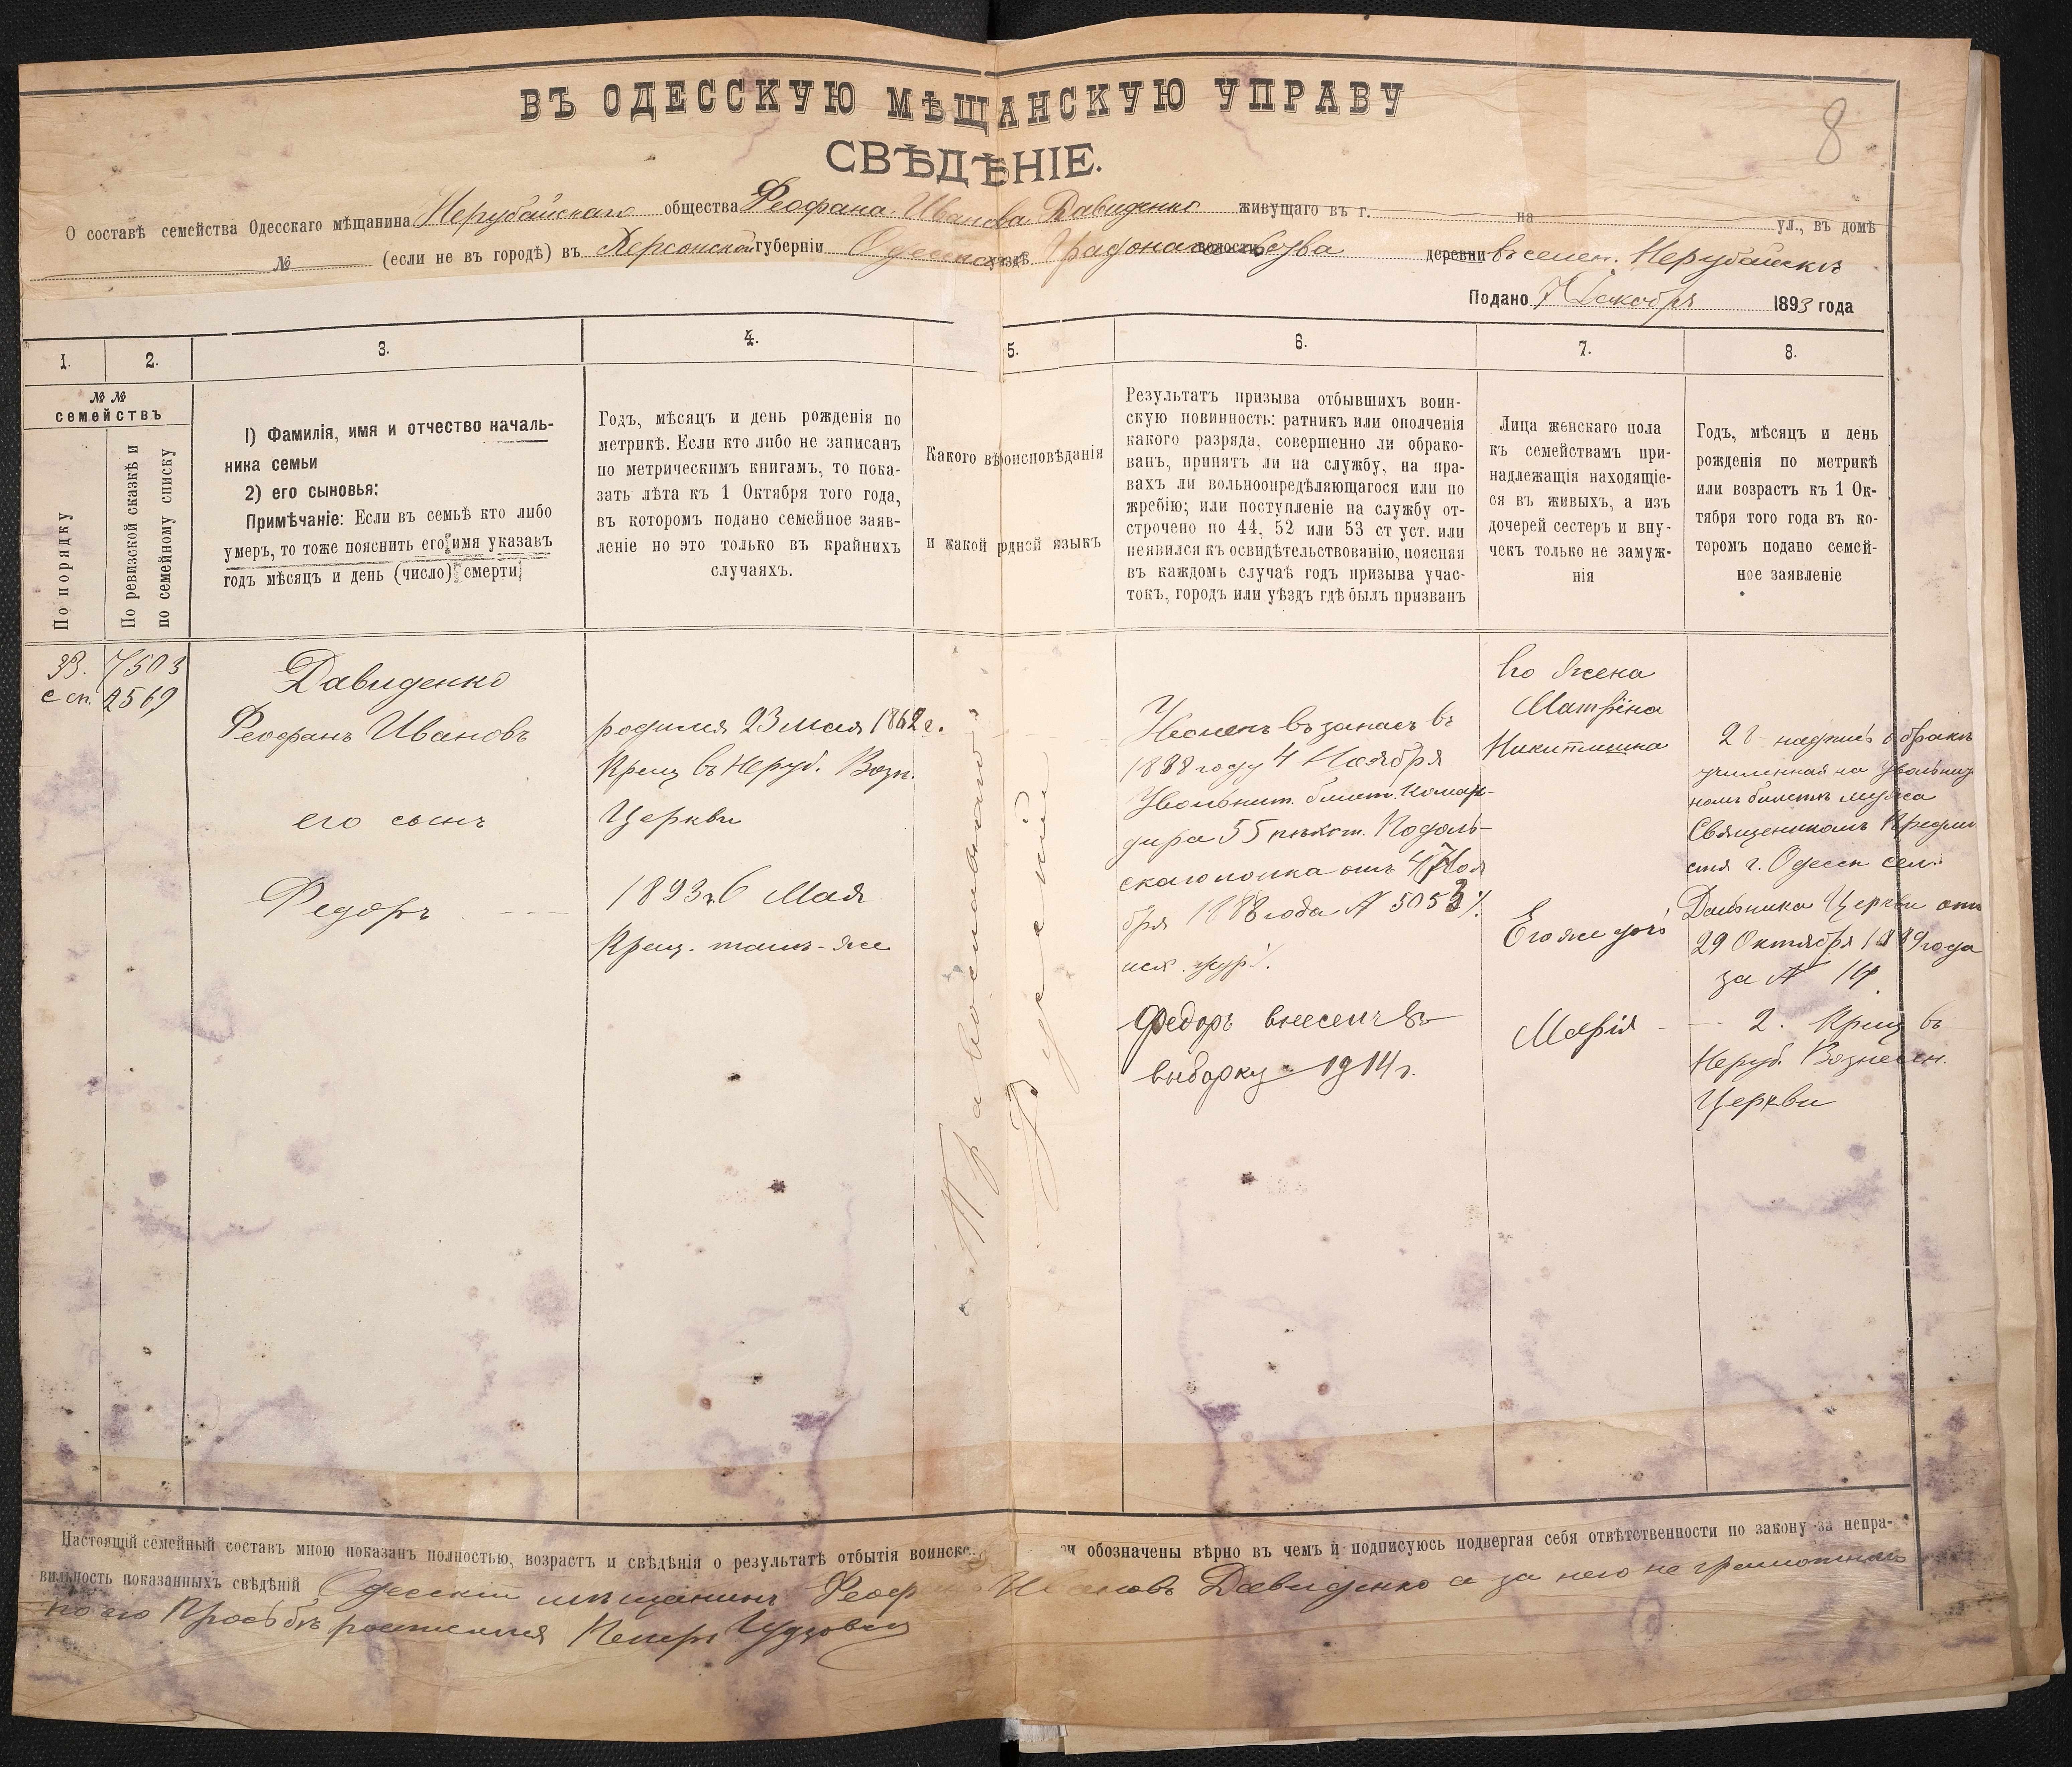 8
ВЪ ОДЕССКУЮ МѢЩАНСКУЮ УПРАВУ
СВѢДѢНІЕ.
О составѣ семейства Одесскаго мѣщанина Нерубайскаго общества Феофана Иванова Давиденко живущаго въ г. на ул., въ домѣ
№ (если не въ городѣ) въ Херсонской губерніи Одесскаго уѣздѣ Градоначальства волости деревни въ селен. Нерубайскѣ
Подано 7 Декабря 1893 года
1.
2.
3.
4.
5.
6.
7.
8.
№ №
семействъ
По порядку
По ревизской сказкѣ и
по семейному списку
1) Фамилія, имя и отчество началь-
ника семьи
2) его сыновья:
Примѣчаніе: Если въ семьѣ кто либо
умеръ, то тоже пояснить его имя указавъ
годъ мѣсяцъ и день (число) смерти
Годъ, мѣсяцъ и день рожденія по
метрикѣ. Если кто либо не записанъ
по метрическимъ книгамъ, то пока-
зать лѣта къ 1 Октября того года,
въ которомъ подано семейное заяв-
леніе но это только въ крайнихъ
случаяхъ.
Какого вѣроисповѣданія
и какой родной языкъ
Результатъ призыва отбывшихъ воин-
скую повинность: ратникъ или ополченія
какого разряда, совершенно ли обрако-
ванъ, принятъ ли на службу, на пра-
вахъ ли вольноопредѣляющагося или по
жребію; или поступленіе на службу от-
строчено по 44, 52 или 53 ст уст. или
неявился къ освидѣтельствованію, поясняя
въ каждомъ случаѣ годъ призыва учас-
токъ, городъ или уѣздъ гдѣ былъ призванъ
Лица женскаго пола
къ семействамъ при-
надлежащія находящіе-
ся въ живыхъ, а изъ
дочерей сестеръ и вну-
чекъ только не замуж-
нія
Годъ, мѣсяцъ и день
рожденія по метрикѣ
или возрастъ къ 1 Ок-
тября того года въ ко-
торомъ подано семей-
ное заявленіе
33. 7503
с сп. 2569
Давиденко
Феофанъ Ивановъ
его сынъ
Федоръ
родился 23 мая 1862 г.
Крещ въ Неруб. Возн.
Церкви
1893 г. 6 Мая
Крещ. тамъ-же
Православнаго
Русскій
Уволенъ въ запасъ въ
1888 году 4 Ноября
Увольнит. билет. коман-
дира 55 пѣхот. Подоль-
скаго полка отъ 4 Ноя
бря 1888 года № 5053
Федоръ внесенъ въ
выборку 1914 г.
Его жена
Матрёна
Никитишна
Его же дочь
Марія
28 надпись о бракѣ
учиненная на увольни
номъ билетѣ мужа
Священникомъ Предмѣ
стья г. Одессы сел.
Дальника Церкви отъ
29 Октября 1889 года
за № 14
2. Крещ въ
Неруб. Вознесен.
Церкви
Настоящій семейный составъ мною показанъ полностью, возрастъ и свѣдѣнія о результатѣ отбытія воинско обозначены вѣрно въ чемъ и подписуюсь подвергая себя отвѣтственности по закону за непра-
вильность показанныхъ свѣдѣній Одесскій мѣщанинъ Феоф Ивановъ Давиденко а за него неграмотнаго
по его просьбѣ росписался Петръ